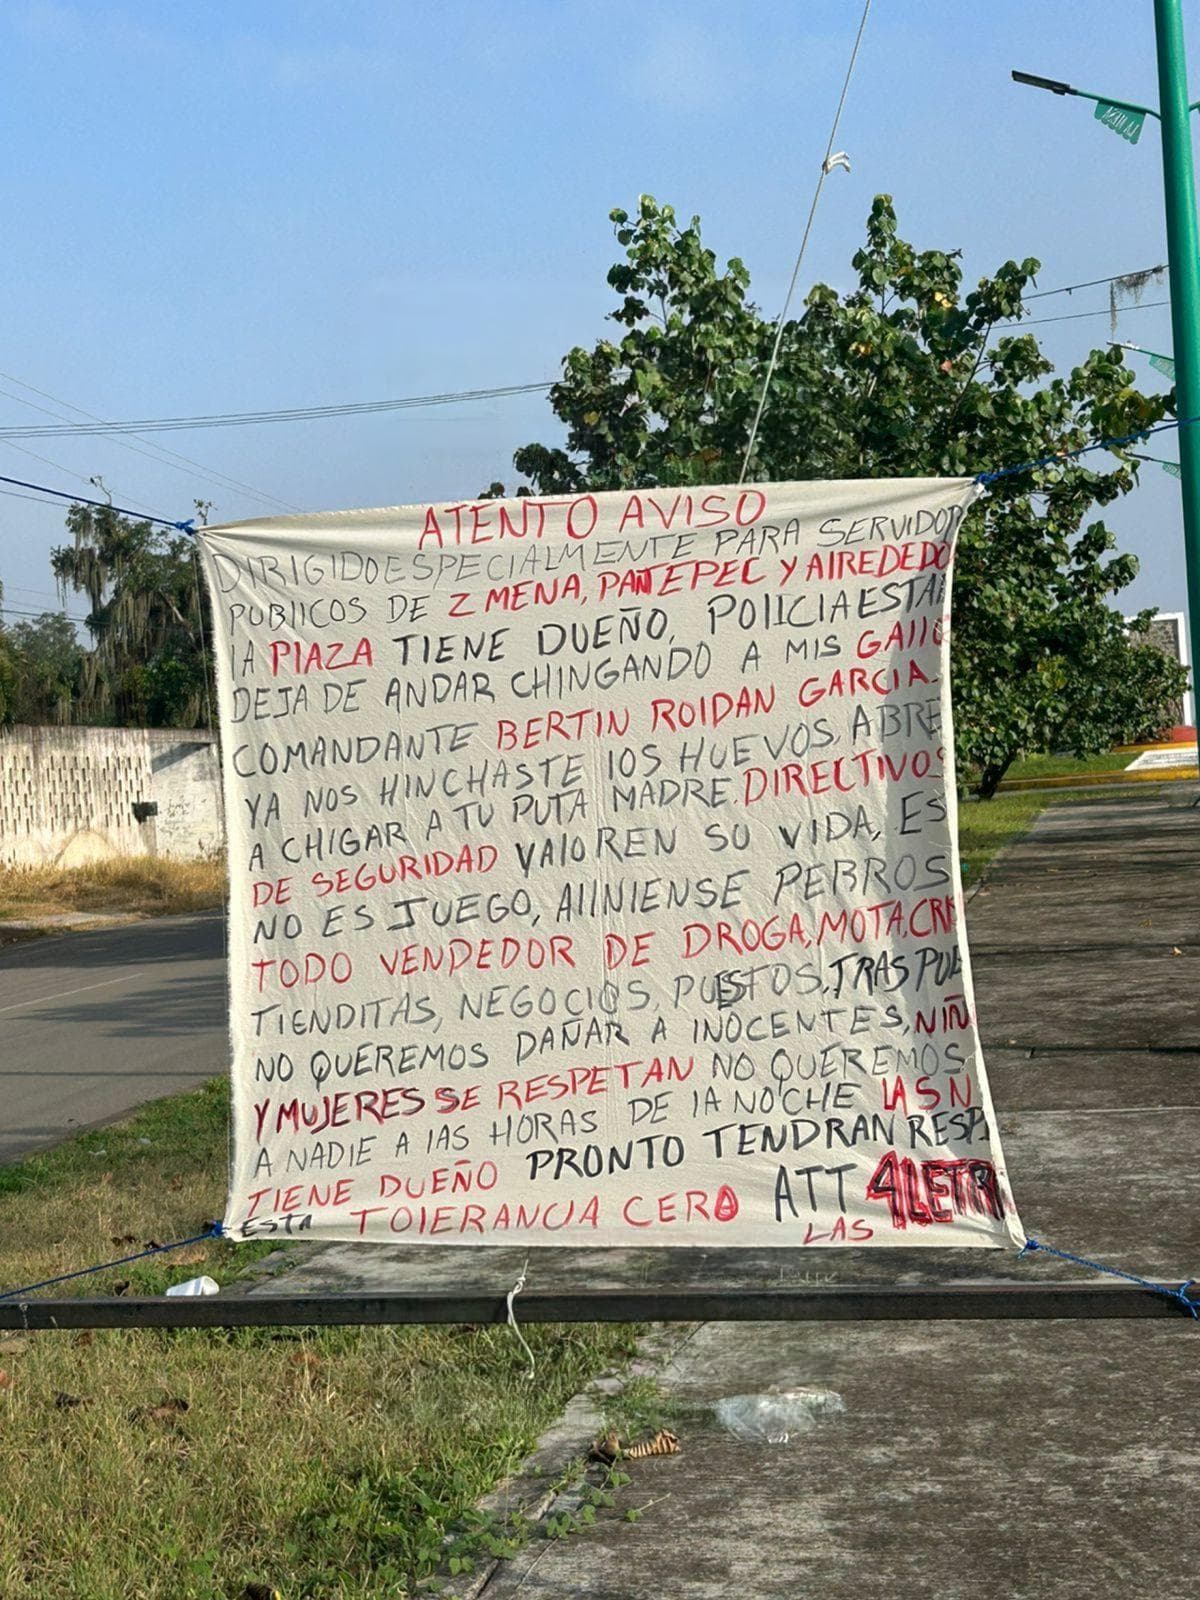 ATENTO AVISO
DIRIGIDO ESPECIALMENTE PARA SERVIDOR
PUBlICOS DE Z MENA, PANTEPEC Y AlREDEDO
lA PlAZA TIENE DUEÑO, POlICIA ESTA
DEJA DE ANDAR CHINGANDO A MIS GAllO
COMANDANTE BERTIN ROlDAN GARCIA.
YA NOS HINCHASTE lOS HUEVOS, ABRE
A CHIGAR A TU PUTA MADRE. DIRECTIVOS
DE SEGURIDAD VAlOREN SU VIDA, ES
NO ES JUEGO, AlINIENSE PERROS
TODO VENDEDOR DE DROGA, MOTA, CRI
TIENDITAS, NEGOCIOS, PUESTOS, TRASPUE
NO QUEREMOS DAÑAR A INOCENTES, NIÑ
Y MUJERES SE RESPETAN NO QUEREMOS
A NADIE A lAS HORAS DE lA NOCHE lAS N
TIENE DUEÑO PRONTO TENDRAN RESP
ESTA TOlERANCIA CERO ATT LAS 4LETR